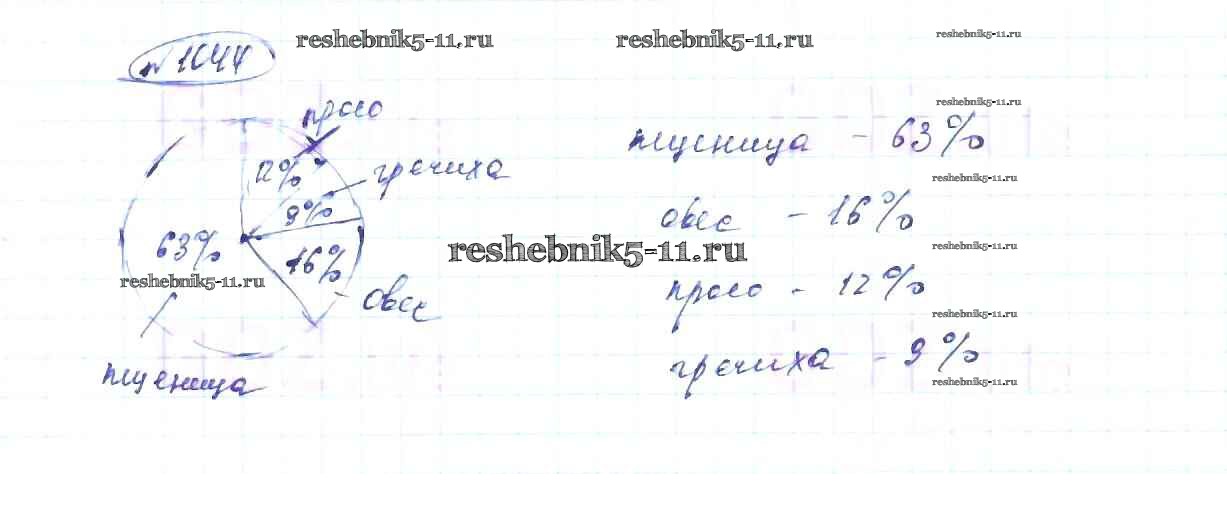 reshebnik5-11.ru reshebnik5-11.ru reshebnik5-11.ru
№1044
reshebnik5-11.ru
просо
пщеница - 63%
12%
гречиха
reshebnik5-11.ru
9%
овес - 16%
63%
16%
reshebnik5-11.ru
reshebnik5-11.ru
reshebnik5-11.ru
овес
просо - 12%
reshebnik5-11.ru
пщеница
гречиха - 9%
reshebnik5-11.ru